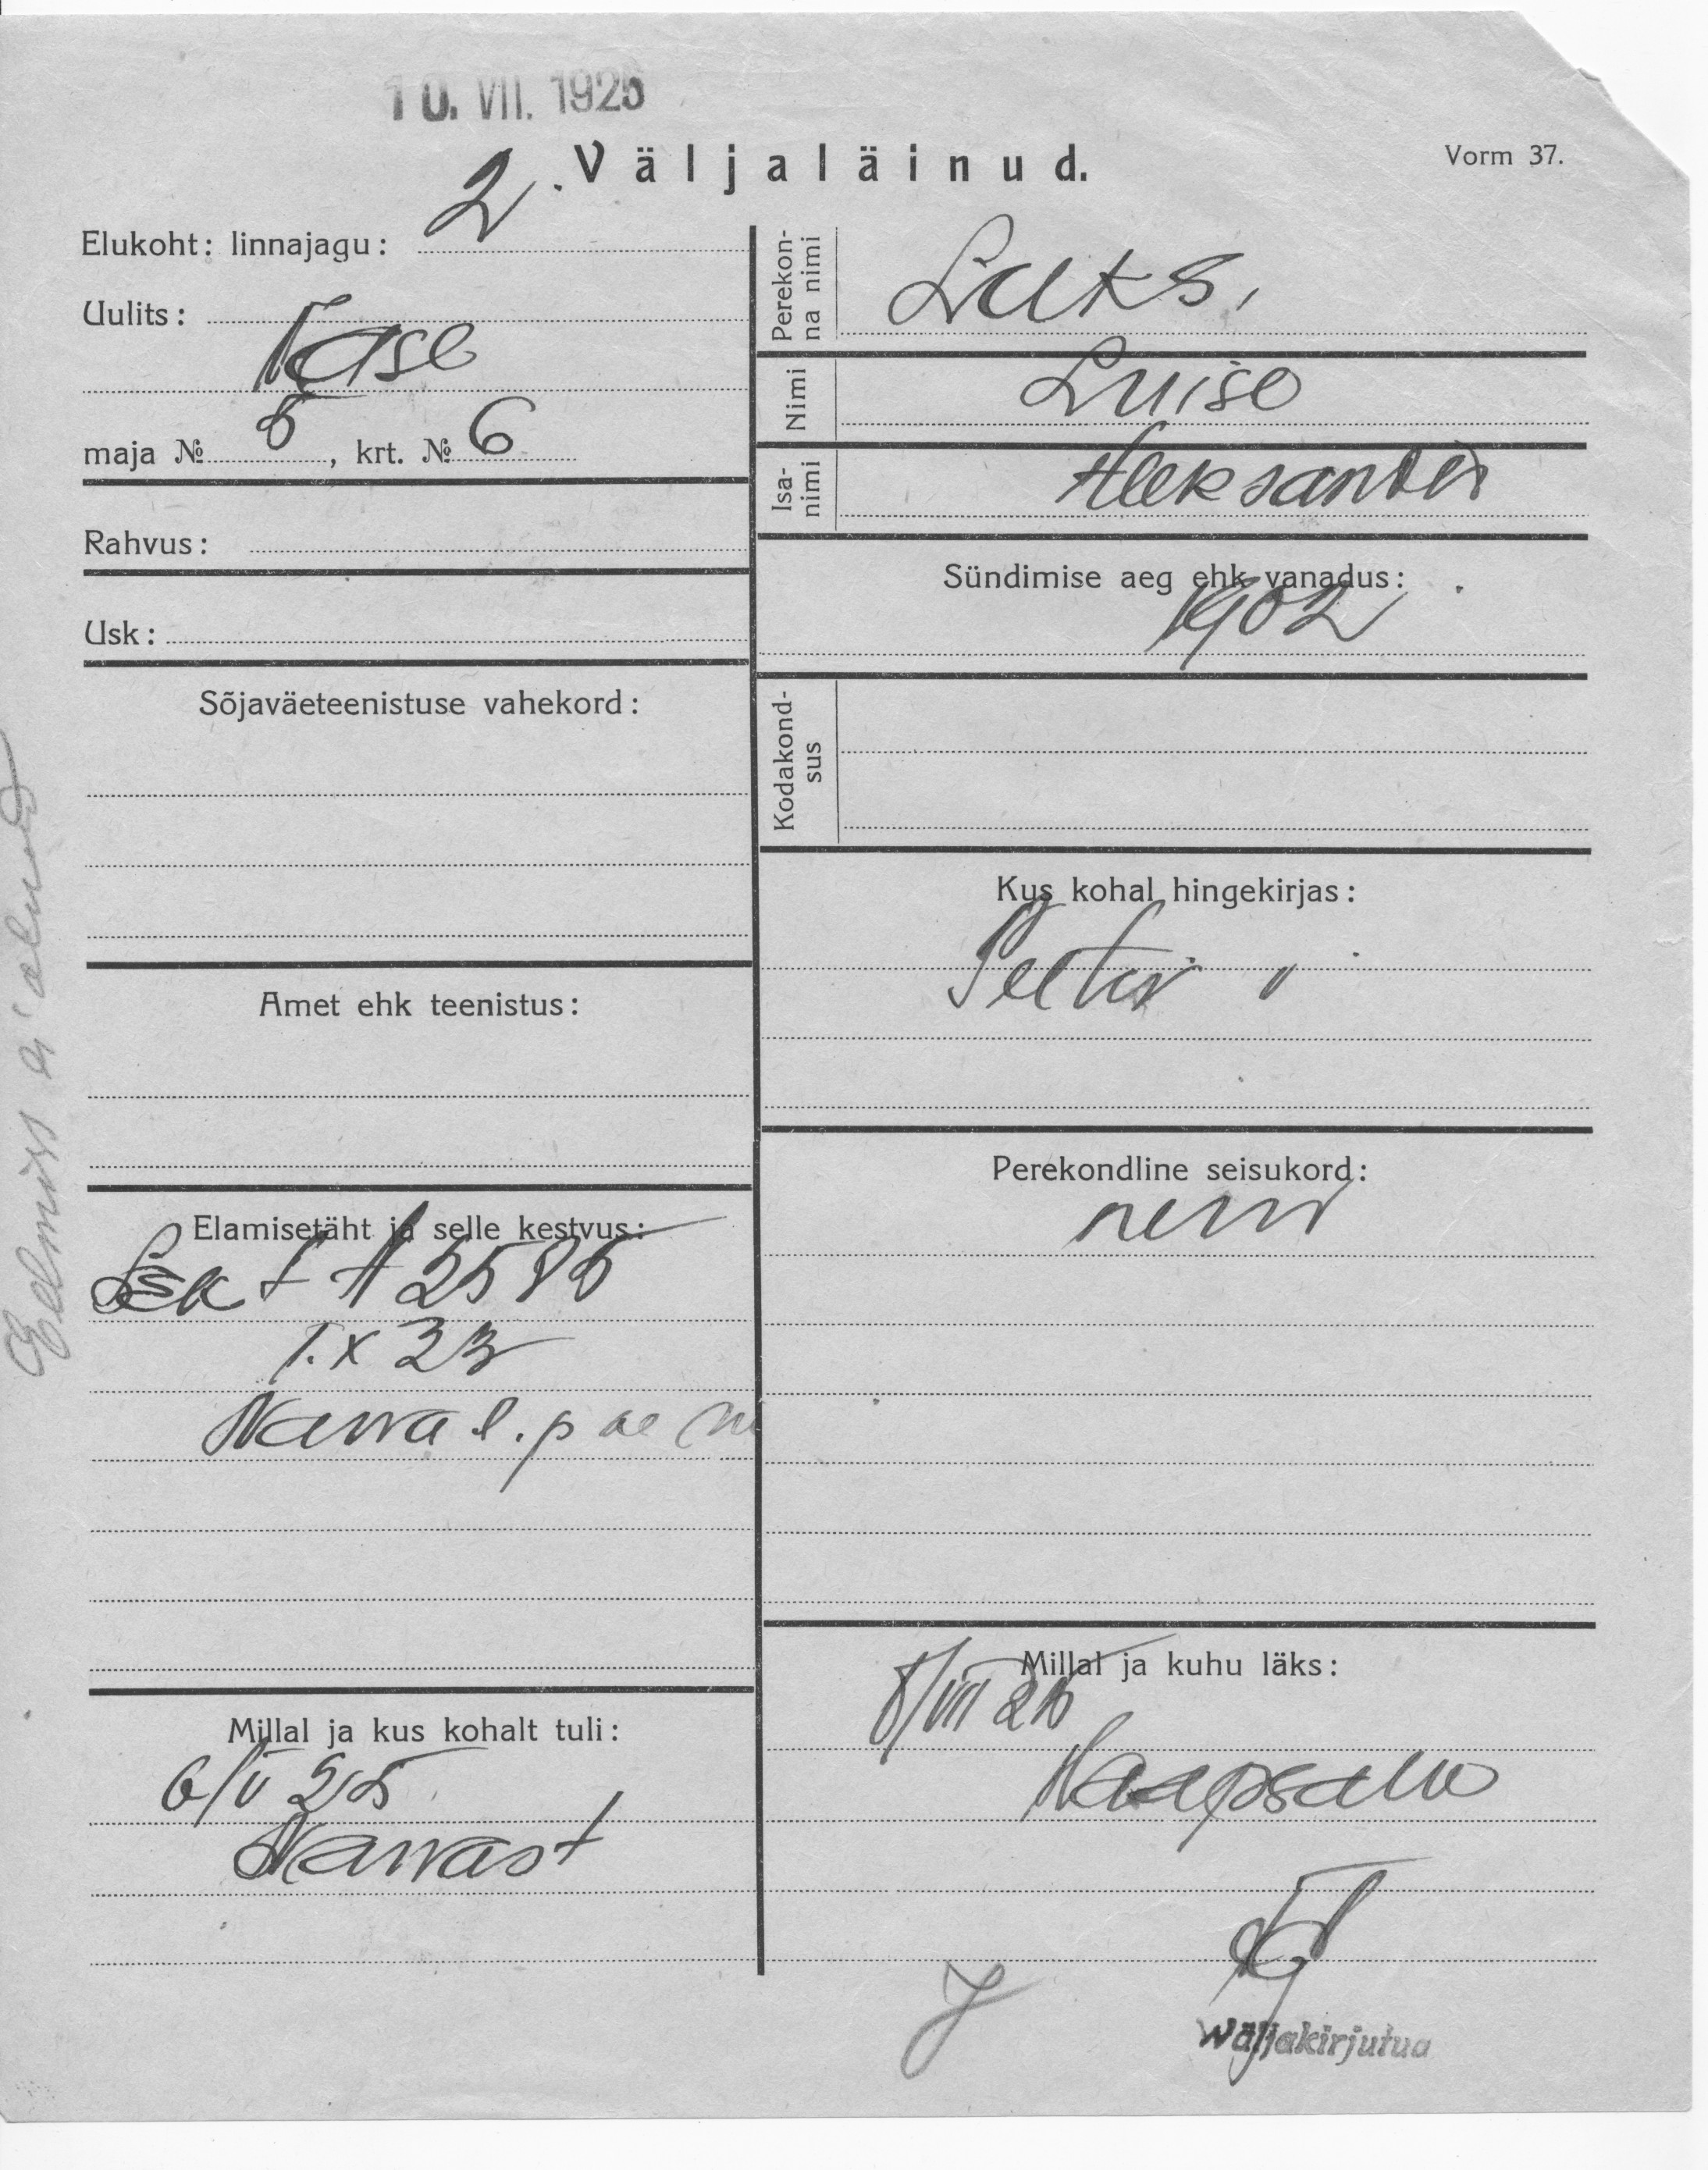 10. VII. 1925
Väljaläinud.
Vorm 37.
Elukoht: linnajagu: 2
Uulits:
Kase
maja № 5, krt. № 6
Rahvus:
Usk:
Sõjaväeteenistuse vahekord:
Amet ehk teenistus:
Elamisetäht ja selle kestvus:
A 2585
I. X 23
Narva l. p
Millal ja kus kohalt tuli:
6/V 25
Narvast
Perekonna nimi
Luks,
Nimi
Luise
Isanimi
Aleksander
Sündimise aeg ehk vanadus:
1902
Kodakondsus
Kus kohal hingekirjas:
Peetri "
Perekondline seisukord:
neiu
Millal ja kuhu läks:
Haapsallu
Wäljakirjutud